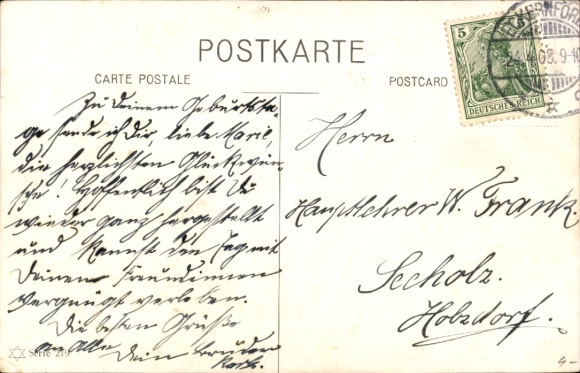 POSTKARTE
CARTE POSTALE
POSTCARD
5
DEUTSCHES REICH
Zu deinem Geburtsta-
ge sende ich dir, liebe Marie,
die herzlichsten Glückwün-
sche! Hoffentlich bist Du
wieder ganz hergestellt
und kannst den Tag mit
Deinen Freundinnen
vergnügt verleben.
Die besten Grüße
an Alle Dein Bruder
Herrn
Hauptlehrer W. Frank
Seeholz.
Holzdorf.
Serie 219
4-